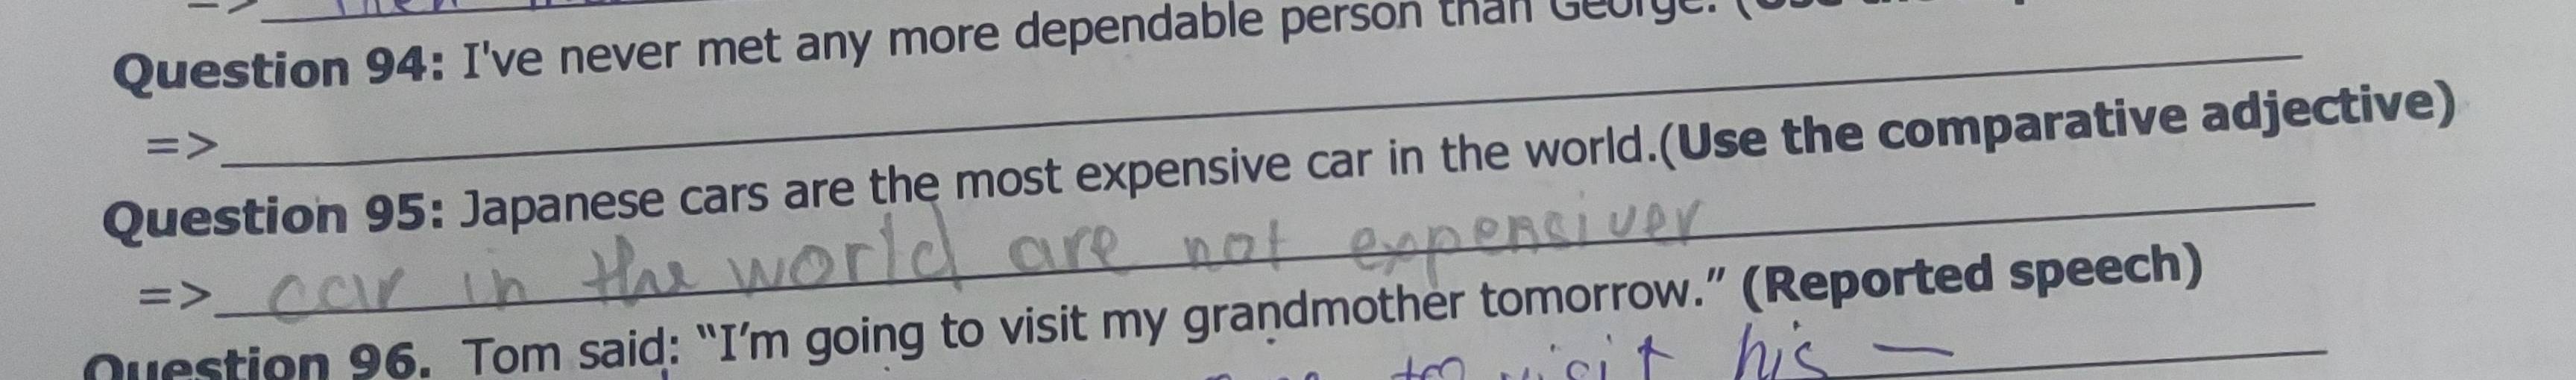 Question 94: I've never met any more dependable person than George. (Use the
=>
Question 95: Japanese cars are the most expensive car in the world.(Use the comparative adjective)
=> car in the world are not expensiver
Question 96. Tom said: "I'm going to visit my grandmother tomorrow." (Reported speech)
to visit his —